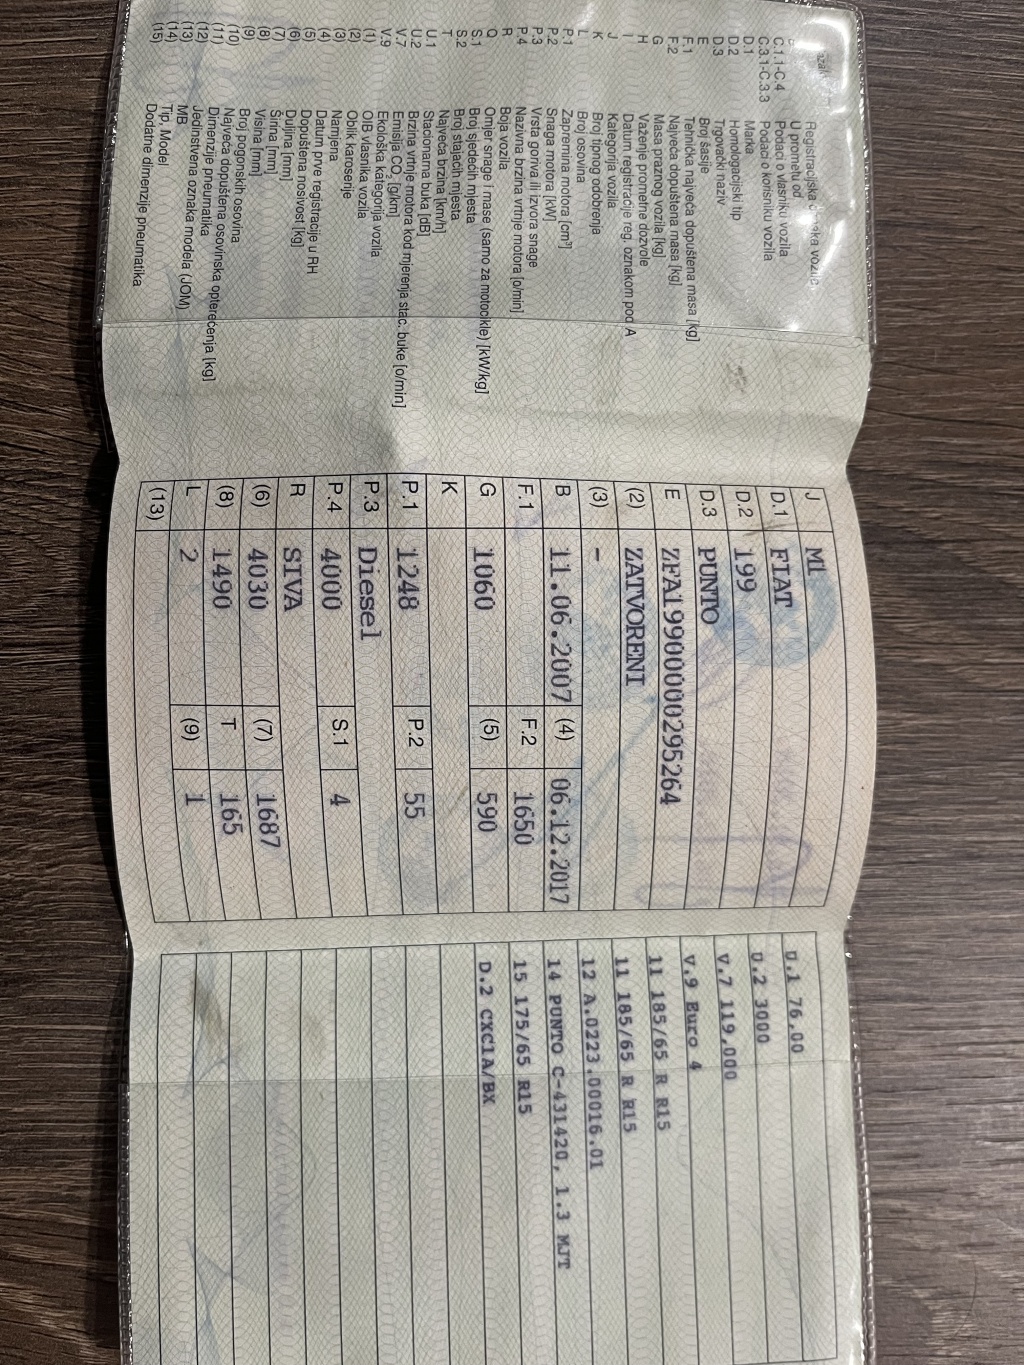 C.1.1-C.4
C.3.1-C.3.3 Podaci o korisniku vozila
Podaci o vlasniku vozila
U prometu od
D.1 Marka
D.2 Homologacijski tip
D.3 Trgovački naziv
E Broj šasije
F.1 Tehnička najveća dopuštena masa [kg]
F.2 Najveća dopuštena masa [kg]
G Masa praznog vozila [kg]
H Važenje prometne dozvole
I Datum registracije reg. oznakom pod A
J Kategorija vozila
K Broj tipnog odobrenja
L Broj osovina
P.1 Zapremina motora [cm³]
P.2 Snaga motora [kW]
P.3 Vrsta goriva ili izvora snage
P.4 Nazivna brzina vrtnje motora [o/min]
R Boja vozila
Q Omjer snage i mase (samo za motocikle) [kW/kg]
S.1 Broj sjedećih mjesta
S.2 Broj stajaćih mjesta
T Najveća brzina [km/h]
U.1 Stacionarna buka [dB]
U.2 Brzina vrtnje motora kod mjerenja stac. buke [o/min]
V.7 Emisija CO₂ [g/km]
V.9 Ekološka kategorija vozila
(1) OIB vlasnika vozila
(2) Oblik karoserije
(3) Namjena
(4) Datum prve registracije u RH
(5) Dopuštena nosivost [kg]
(6) Duljina [mm]
(7) Širina [mm]
(8) Visina [mm]
(9) Broj pogonskih osovina
(10) Najveća dopuštena osovinska opterećenja [kg]
(11) Dimenzije pneumatika
(12) Jedinstvena oznaka modela (JOM)
(13) MB
(14) Tip, Model
(15) Dodatne dimenzije pneumatika
J M1
D.1 FIAT
D.2 199
D.3 PUNTO
E ZFA19900000295264
(2) ZATVORENI
(3) –
B 11.06.2007 (4) 06.12.2017
F.1 F.2 1650
G 1060 (5) 590
K
P.1 1248 P.2 55
P.3 Diesel
P.4 4000 S.1 4
R SIVA
(6) 4030 (7) 1687
(8) 1490 T 165
L 2 (9) 1
(13)
U.1 76,00
U.2 3000
V.7 119,000
V.9 Euro 4
11 185/65 R R15
11 185/65 R R15
12 A.0223.00016.01
14 PUNTO C-431420, 1.3 MJT
15 175/65 R15
D.2 CXC1A/BX